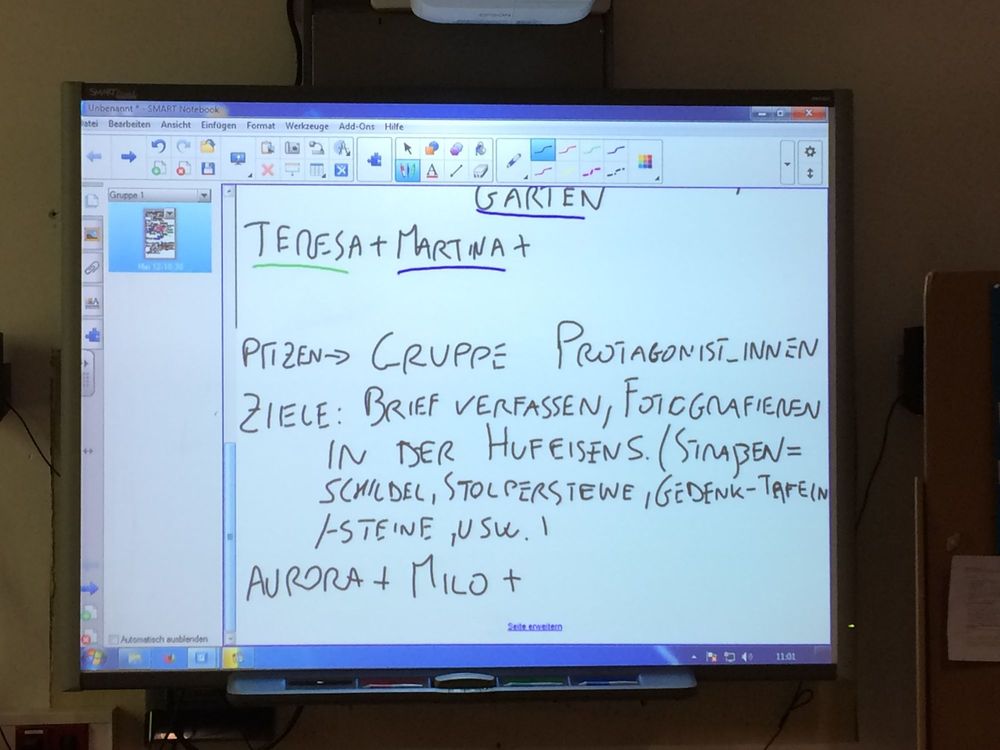 EPSON
SMART
Unbenannt * - SMART Notebook
atei Bearbeiten Ansicht Einfügen Format Werkzeuge Add-Ons Hilfe
Gruppe 1
GARTEN
TERESA + MARTINA +
PTIZEN → GRUPPE PROTAGONIST_INNEN
ZIELE: BRIEF VERFASSEN, FOTOGRAFIEREN
IN DER HUFEISENS. (STRAßEN=
SCHILDEL, STOLPERSTEINE, GEDENK-TAFELN
/-STEINE, USW. )
AURORA + MILO +
Seite erweitern
Automatisch ausblenden
11:01